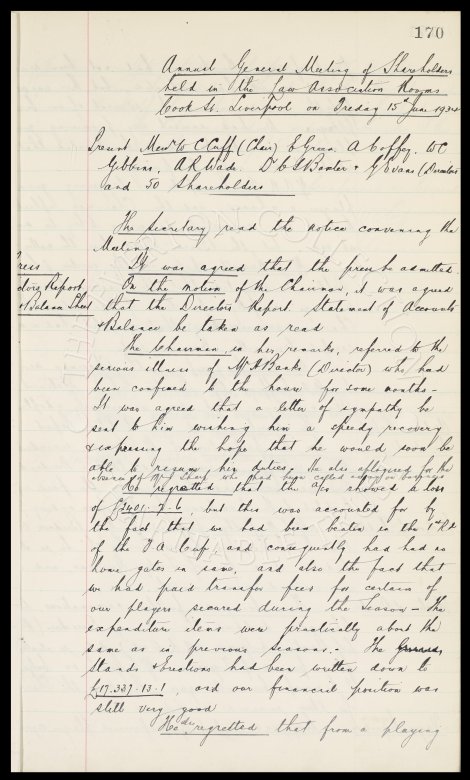 170
Annual General Meeting of Shareholders
held in the Law Association Rooms
Cook St. Liverpool on Friday 15th June 1934
Present Messrs W C Cuff (Chair) E Green. A Coffey. W C
Gibbins. A R Wade. Dr C S Baxter & G Evans (Directors
and 50 Shareholders
The Secretary read the notice convening the
Meeting
It was agreed that the press be admitted
Press
On the motion of the Chairman, it was agreed
Directors Report
that the Directors Report. Statement of Accounts
& Balance Sheet
& Balance be taken as read
The Chairman in his remarks, referred to the
serious illness of Mr A Banks (Director) who had
been confined to the house for some months -
It was agreed that a letter of sympathy be
sent to him wishing him a speedy recovery
& expressing the hope that he would soon be
able to resume his duties. He also apologised for the
absence of Mr Sharp who had been called away on business
He regretted that the a/cs showed a loss
of £2401. 7. 6, but this was accounted for by
the fact that we had been beaten in the 1st Rd
of the F A Cup, and consequently had had no
home gates in same, and also the fact that
we had paid transfer fees for certain of
our players secured during the Season - The
expenditure items were practically about the
same as in previous seasons. - The
Stands & Erections had been written down to
£17.337.13.1, and our financial position was
still very good
He regretted that from a playing